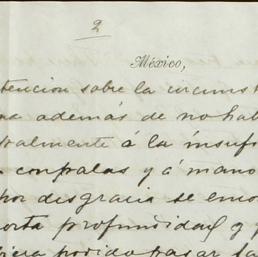 2
México,
tencion sobre la circunst
ne además de no hab
tralmente á la insufi
n conpalas y á mano
por desgracia se em
orta profundidad y
podido pasar